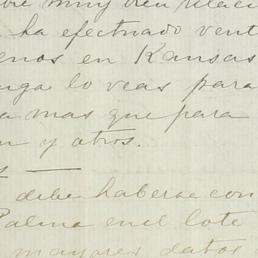 muy bien relaci
ha efectuado vent
enos en Kansas
nga lo veas para
a mas que para
n y otros.
debe haberse con
Palma en el lote
mayores datos